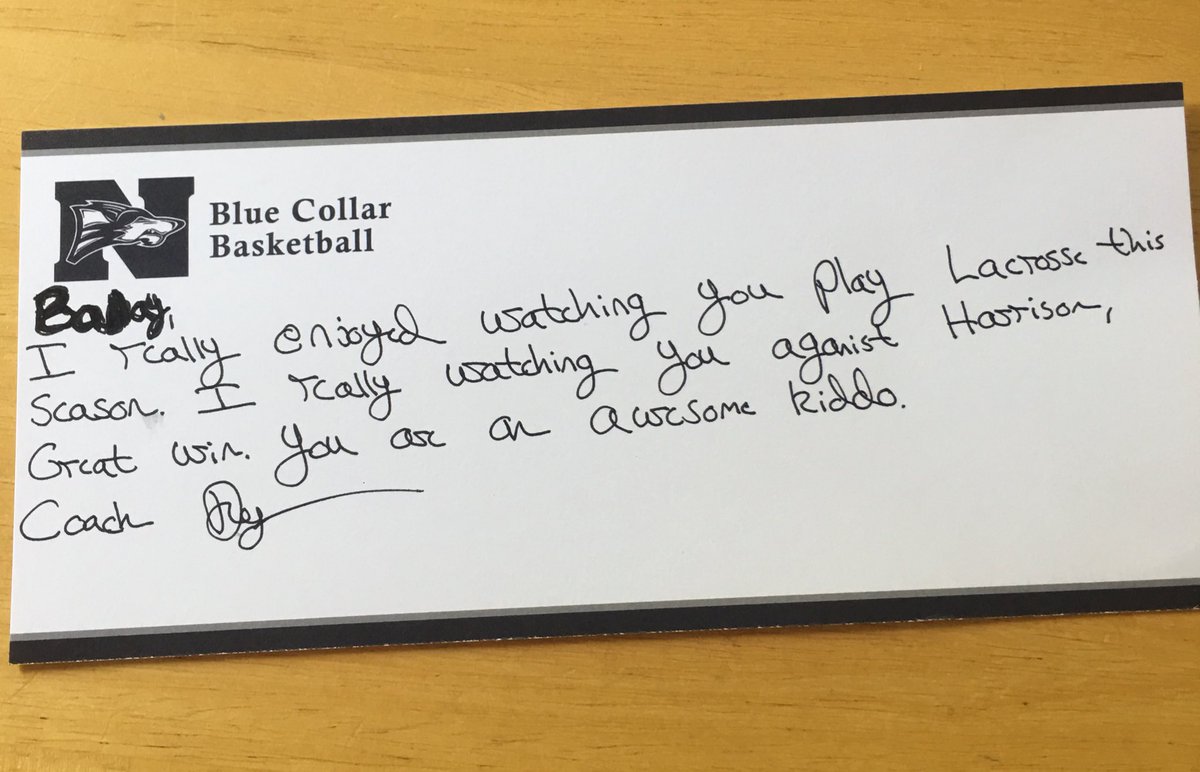 N
Blue Collar
Basketball
I really enjoyed watching you play Lacrosse this
Season. I really watching you aganist Harrison,
Great win. You are an awesome kiddo.
Coach